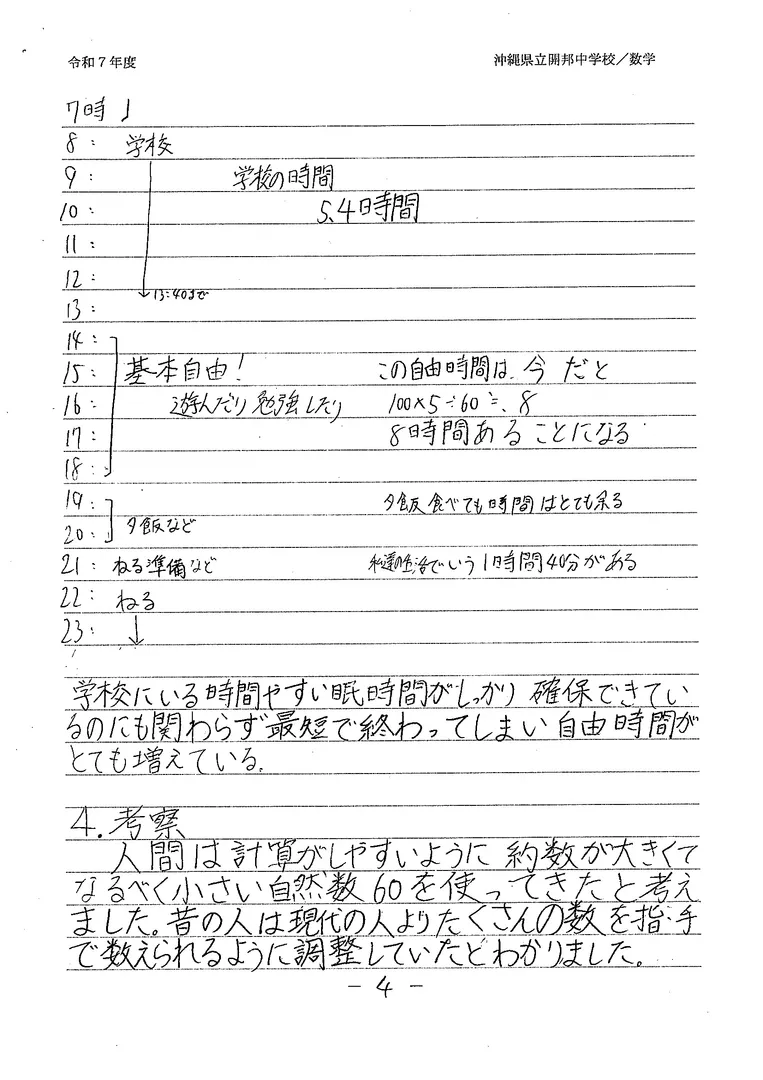 令和7年度 沖縄県立開邦中学校／数学
7時 ↓
8： 学校
9： 学校の時間
10： 5.4時間
11：
12：
13:40まで
13：
14：
15： 基本自由！ この自由時間は、今だと
16： 遊んだり勉強したり 100×5÷60≒、8
17： 8時間あることになる
18：
19： 夕飯食べても時間はとても余る
20： 夕飯など
21： ねる準備など 私達の生活でいう1時間40分がある
22： ねる
23： ↓
学校にいる時間やすい眠時間がしっかり確保できてい
るのにも関わらず最短で終わってしまい自由時間が
とても増えている。
4.考察
人間は計算がしやすいように約数が大きくて
なるべく小さい自然数60を使ってきたと考え
ました。昔の人は現代の人よりたくさんの数を指・手
で数えられるように調整していたとわかりました。
- 4 -